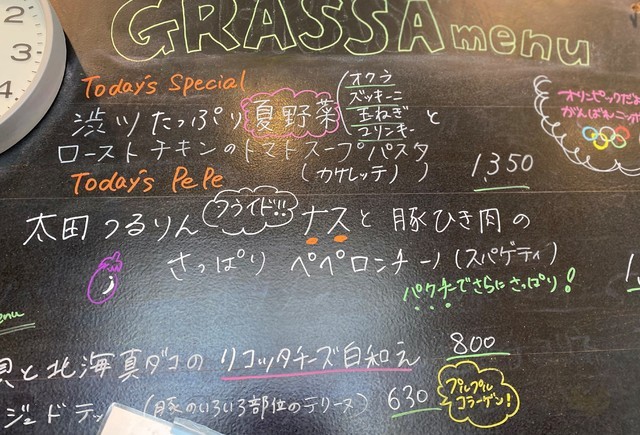 GRASSA menu
Today's Special
渋ツたっぷり夏野菜(オクラ ズッキーニ 玉ねぎ エリンギー)と
ローストチキンのトマトスープパスタ
(カサレッテ) 1,350
Today's PePe
太田つるりん フライド!! ナスと豚ひき肉の
さっぱり ペペロンチーノ(スパゲティ)
パクチーでさらにさっぱり!
menu
貝と北海真ダコのリコッタチーズ白和え 800
(豚のいろいろ部位のテリーヌ) 630
プルプルコラーゲン!
オリンピックだよ
がんばれニッポ
2
3
4